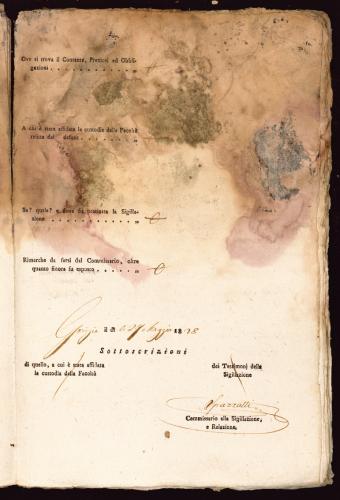 Ove si trova il Contante, Preziosi ed Obbli-
gazioni . . . . . . . . . . . „
A chi è stata affidata la custodia della Facoltà
relitta del defunto . . . . . . . „
Se? quale? e dove fu praticata la Sigilla-
zione . . . . . . . . . . . „
Rimarche da farsi dal Commissario, oltre
quanto finora fu esposto . . . . . . „
Gorizia il dì Maggio 1828
Sottoscrizioni
di quello, a cui è stata affidata
la custodia della Facoltà
dei Testimonj della
Sigillazione
Spazzalli
Commissario alla Sigillazione,
e Relazione.